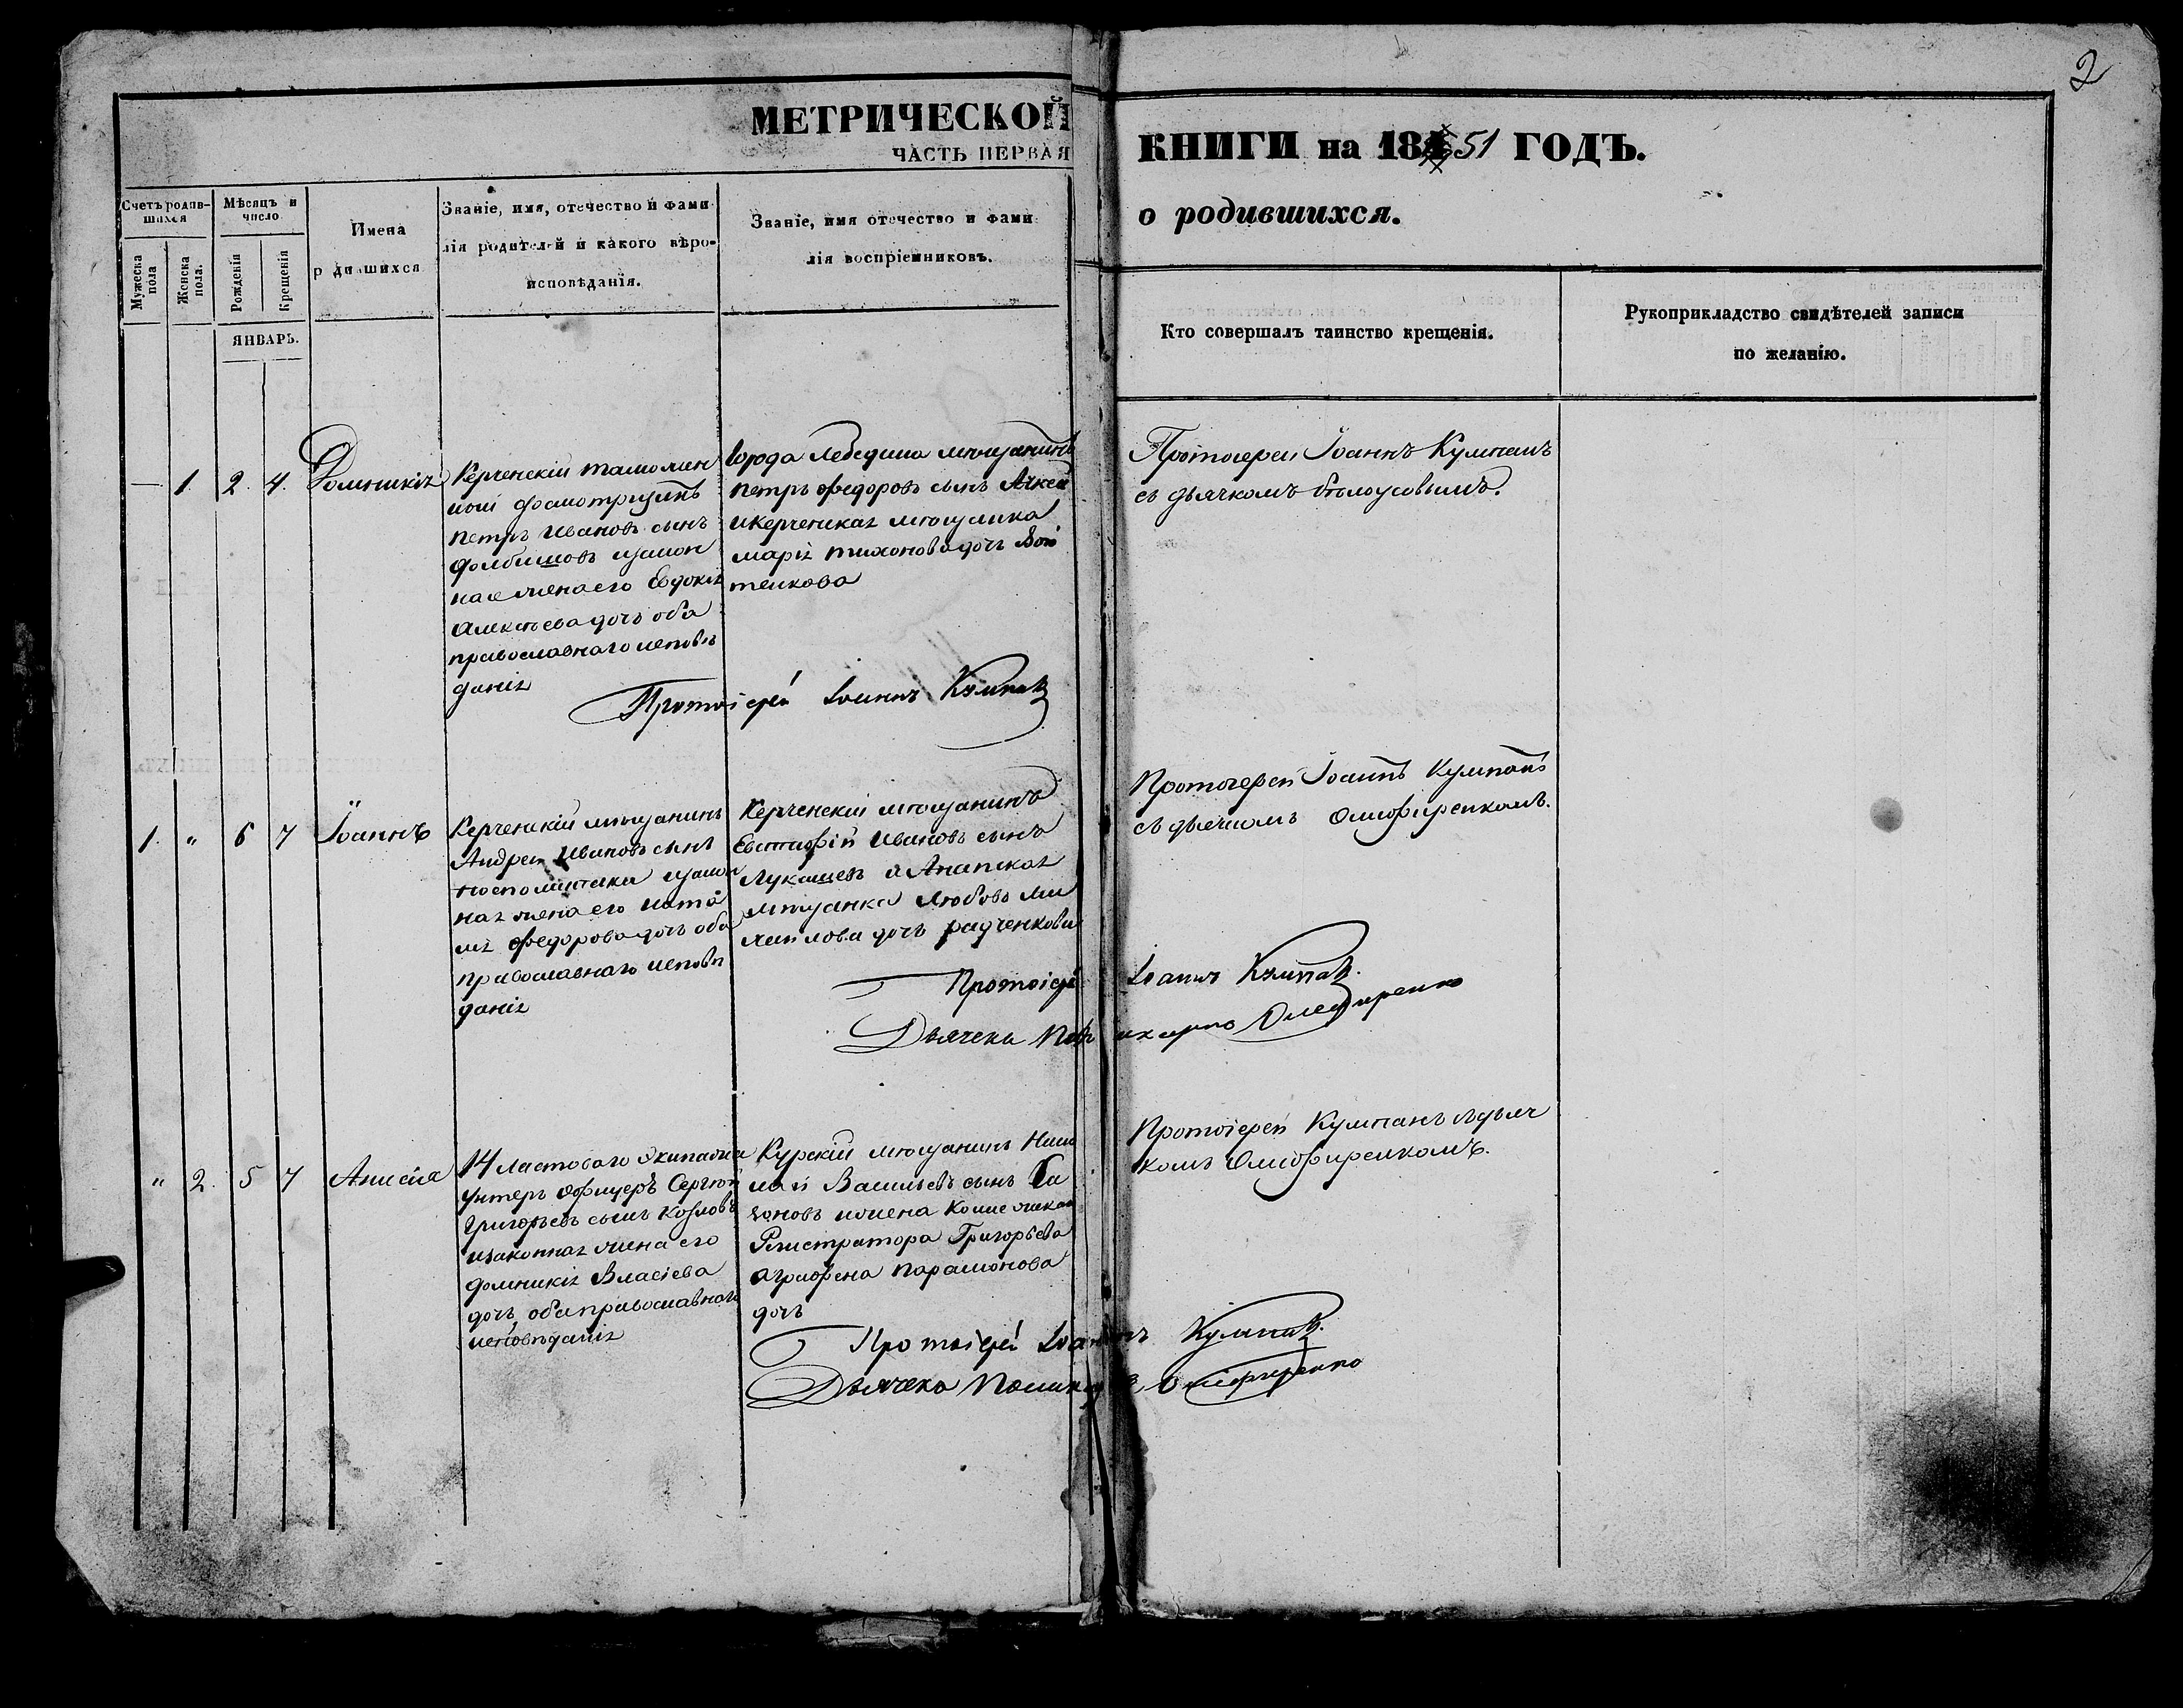 2
МЕТРИЧЕСКОЙ КНИГИ на 1851 ГОДЪ.
ЧАСТЬ ПЕРВАЯ о родившихся.
Счетъ родив-
шихся
Мужеска пола
Женска пола.
Мѣсяцъ и
число
Рожденія
Крещенія
Имена
р дившихся
Званіе, имя, отечество и фами
лія родителей и какого вѣро-
исповѣданія.
Званіе, имя отечество и фами
лія воспріемниковъ.
Кто совершалъ таинство крещенія.
Рукоприкладство свидѣтелей записи
по желанію.
ЯНВАРЬ.
— 1. 2. 4. Домникія
Керченскій таможен
ный досмотрщикъ
Петръ Ивановъ сынъ
законная жена его Евдокія
Алексѣева дочь оба
православнаго исповѣ
данія
города Лебедина мѣщанинъ
Петръ Федоровъ сынъ
и Керченская мѣщанка
Марія Тихонова дочь Вой
тенкова
Протоіерей Іоаннъ Кумпанъ
съ дьячкомъ Бѣлоусовымъ.
Протоіерей Іоаннъ Кумпанъ
1. " 6 7 Іоаннъ
Керченскій мѣщанинъ
Андрей Ивановъ сынъ
закон
ная жена его Ната
лія Федорова дочь оба
православнаго исповѣ
данія
Керченскій мѣщанинъ
Евстафій Ивановъ сынъ
Лукашевъ и Анапская
мѣщанка Любовь Ми
хайлова дочь Радченкова
Протоіерей Іоаннъ Кумпанъ
съ дьячкомъ Олиофиренкомъ.
Протоіерей Іоаннъ Кумпанъ.
Дьячекъ Олефиренко
" 2. 5 7 Анисія
14 Ластоваго Экипажа
унтеръ офицеръ Сергѣй
Григорьевъ сынъ Козловъ
и законная жена его
Домникія Власіева
дочь, оба православнаго
исповѣданія
Курскій мѣщанинъ Нико
лай Васильевъ сынъ
и жена Коллежскаго
Регистратора Григорьева
Аграфена Парамонова
дочь
Протоіерей Кумпанъ съ дьяч
комъ Олиофиренкомъ.
Протоіерей Іоаннъ Кумпанъ.
Дьячекъ Олиофиренко